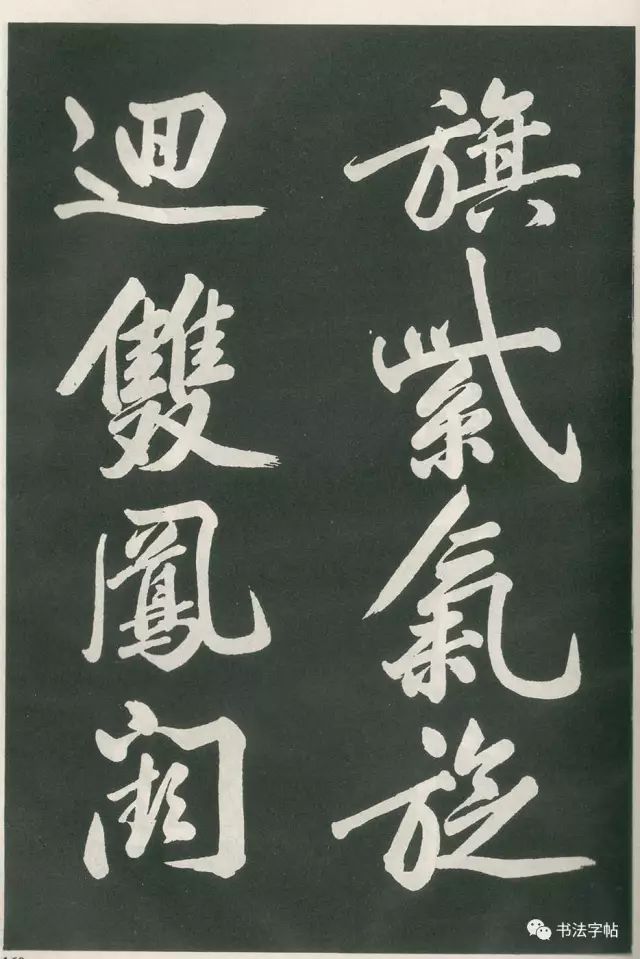 旗紫氣旋
迴雙鳳闕
书法字帖